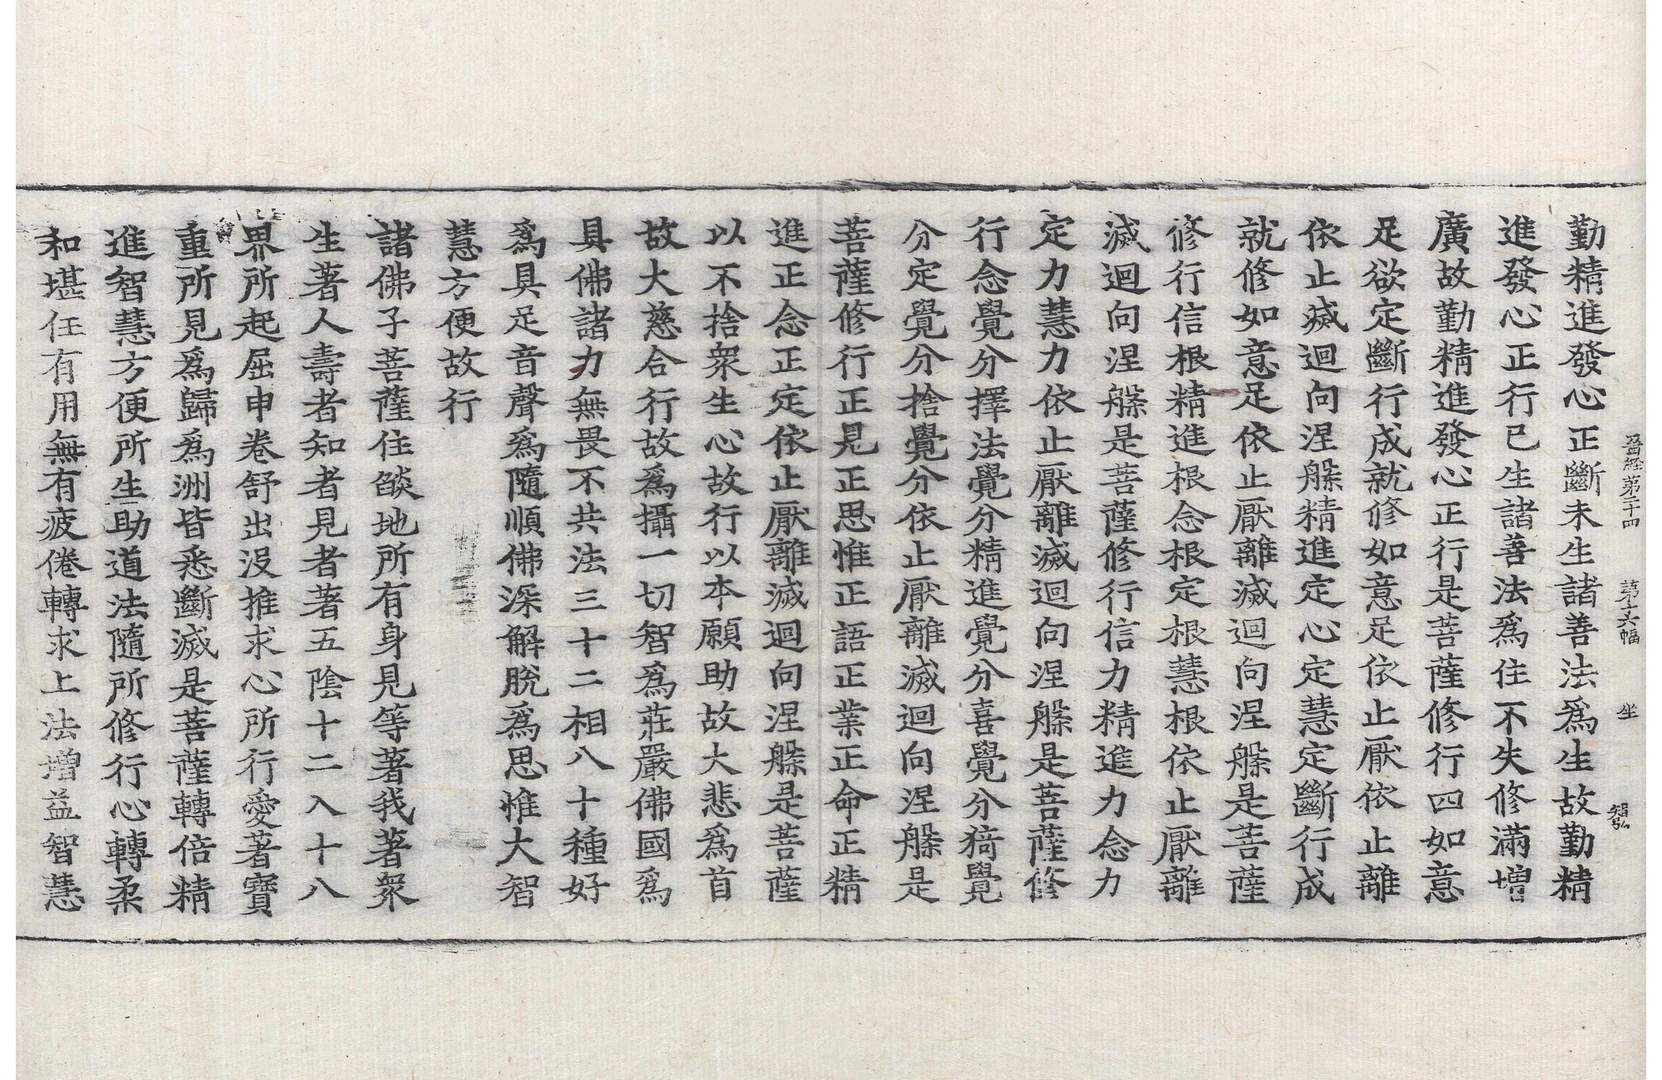 晉經第二十四 第十六幅 坐
勤精進發心正斷未生諸善法爲生故勤精
進發心正行已生諸善法爲住不失修滿增
廣故勤精進發心正行是菩薩修行四如意
足欲定斷行成就修如意足依止厭依止離
依止滅迴向涅槃精進定心定慧定斷行成
就修如意足依止厭離滅迴向涅槃是菩薩
修行信根精進根念根定根慧根依止厭離
滅迴向涅槃是菩薩修行信力精進力念力
定力慧力依止厭離滅迴向涅槃是菩薩修
行念覺分擇法覺分精進覺分喜覺分猗覺
分定覺分捨覺分依止厭離滅迴向涅槃是
菩薩修行正見正思惟正語正業正命正精
進正念正定依止厭離滅迴向涅槃是菩薩
以不捨衆生心故行以本願助故大悲爲首
故大慈合行故爲攝一切智爲莊嚴佛國爲
具佛諸力無畏不共法三十二相八十種好
爲具足音聲爲隨順佛深解脫爲思惟大智
慧方便故行
諸佛子菩薩住燄地所有身見等著我著衆
生著人壽者知者見者著五陰十二入十八
界所起屈申卷舒出沒推求心所行愛著寶
重所見爲歸爲洲皆悉斷滅是菩薩轉倍精
進智慧方便所生助道法隨所修行心轉柔
和堪任有用無有疲倦轉求上法增益智慧